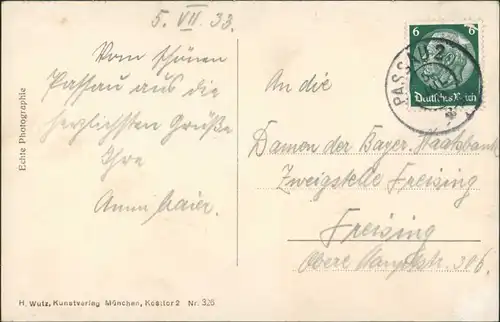 5. VII. 33.
Vom schönen
Passau aus die
herzlichsten Grüße
Ihre
Anni Maier.
Echte Photographie
6 6
Deutsches Reich
PASSAU 2
An die
Damen der Bayer. Staatsbank
Zweigstelle Freising
Freising
Obere Hauptstr. 306.
H. Wutz, Kunstverlag München, Kosttor 2 Nr. 326